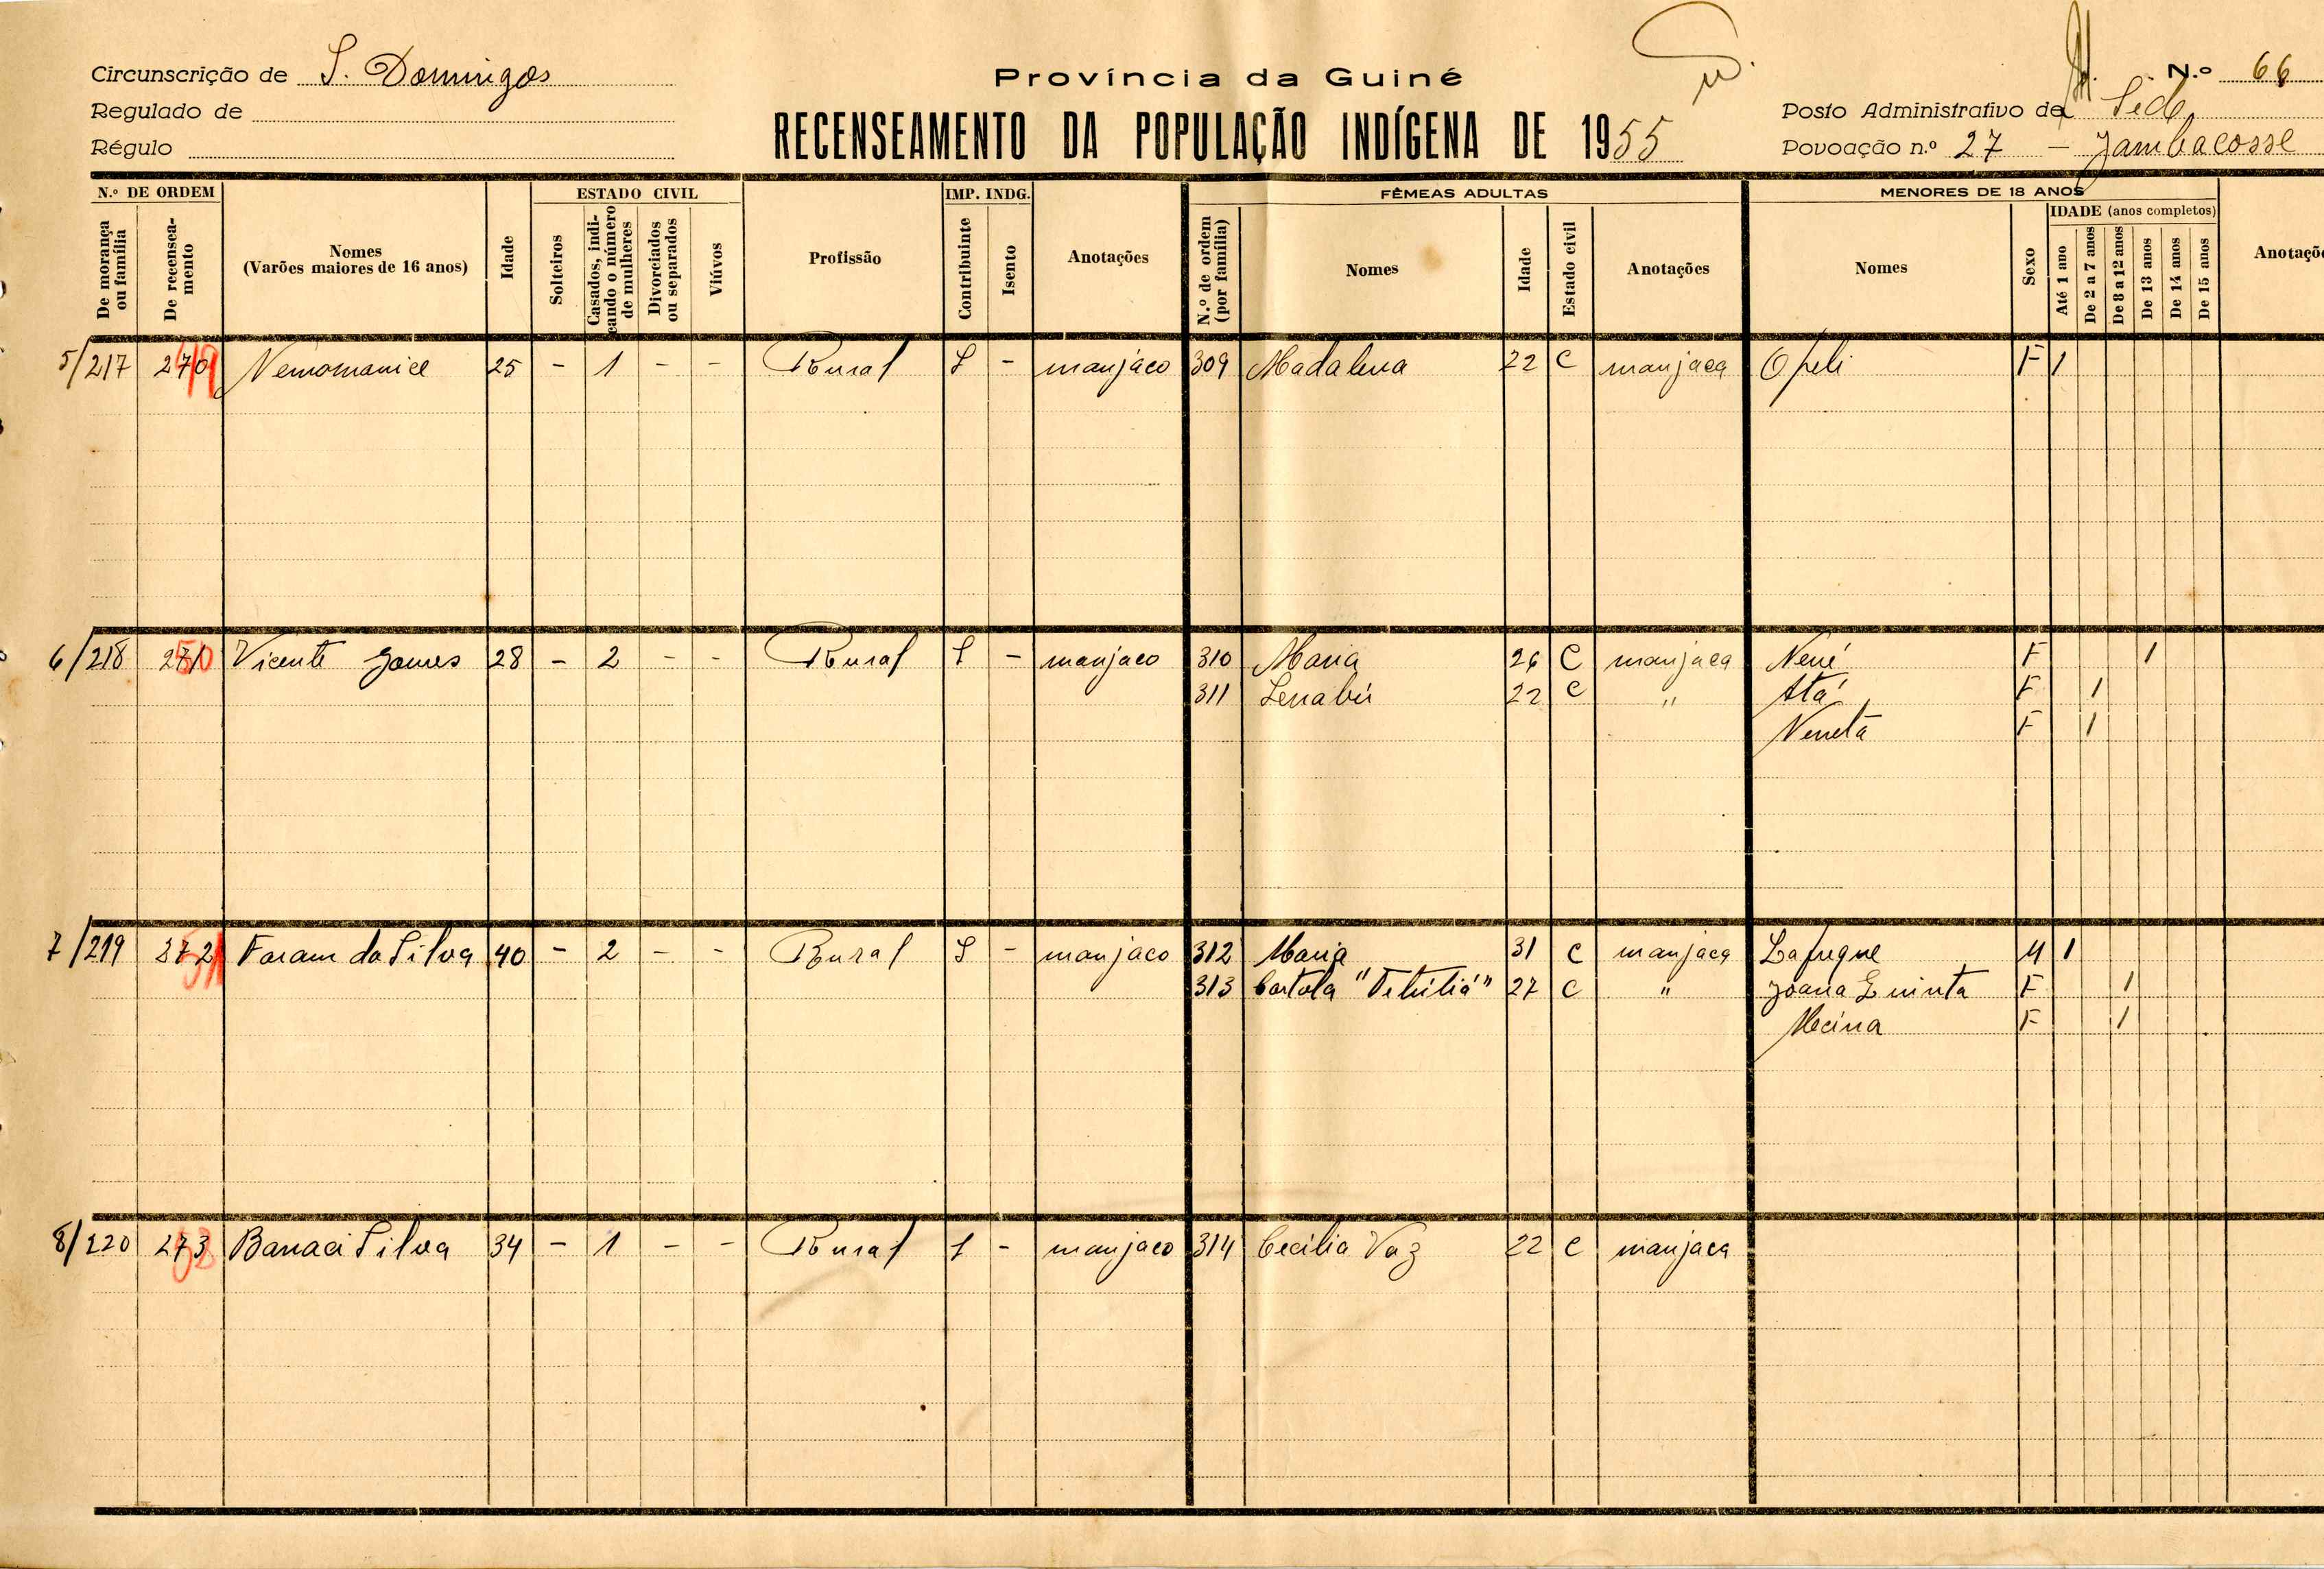 Circunscrição de S. Domingos
Regulado de
Régulo
Província da Guiné
RECENSEAMENTO DA POPULAÇÃO INDÍGENA DE 1955
N.º 66
Posto Administrativo de Sede
Povoação n.º 27 - Jambacosse
N.º DE ORDEM
De morança ou família
De recensea-mento
Nomes
(Varões maiores de 16 anos)
Idade
ESTADO CIVIL
Solteiros
Casados, indi-cando o número de mulheres
Divorciados ou separados
Viúvos
Profissão
IMP. INDG.
Contribuinte
Isento
Anotações
FÊMEAS ADULTAS
N.º de ordem (por família)
Nomes
Idade
Estado civil
Anotações
MENORES DE 18 ANOS
Nomes
Sexo
IDADE (anos completos)
Até 1 ano
De 2 a 7 anos
De 8 a 12 anos
De 13 anos
De 14 anos
De 15 anos
Anotaçõe
5/217 270 25 - 1 - - Rural S - manjaco 309 Madalena 22 C manjaca Opeli F 1
6/218 271 Vicente Gomes 28 - 2 - - Rural S - manjaco 310 Maria 26 C manjaca Nené F 1
311 Lenabú 22 C " Atá F 1
Neneta F 1
7/219 372 Faram da Silva 40 - 2 - - Rural S - manjaco 312 Maria 31 C manjaca Lafuque M 1
313 27 C " Joana Quinta F 1
Mecina F 1
8/220 273 Banaci Silva 34 - 1 - - Rural S - manjaco 314 Cecilia Vaz 22 C manjaca